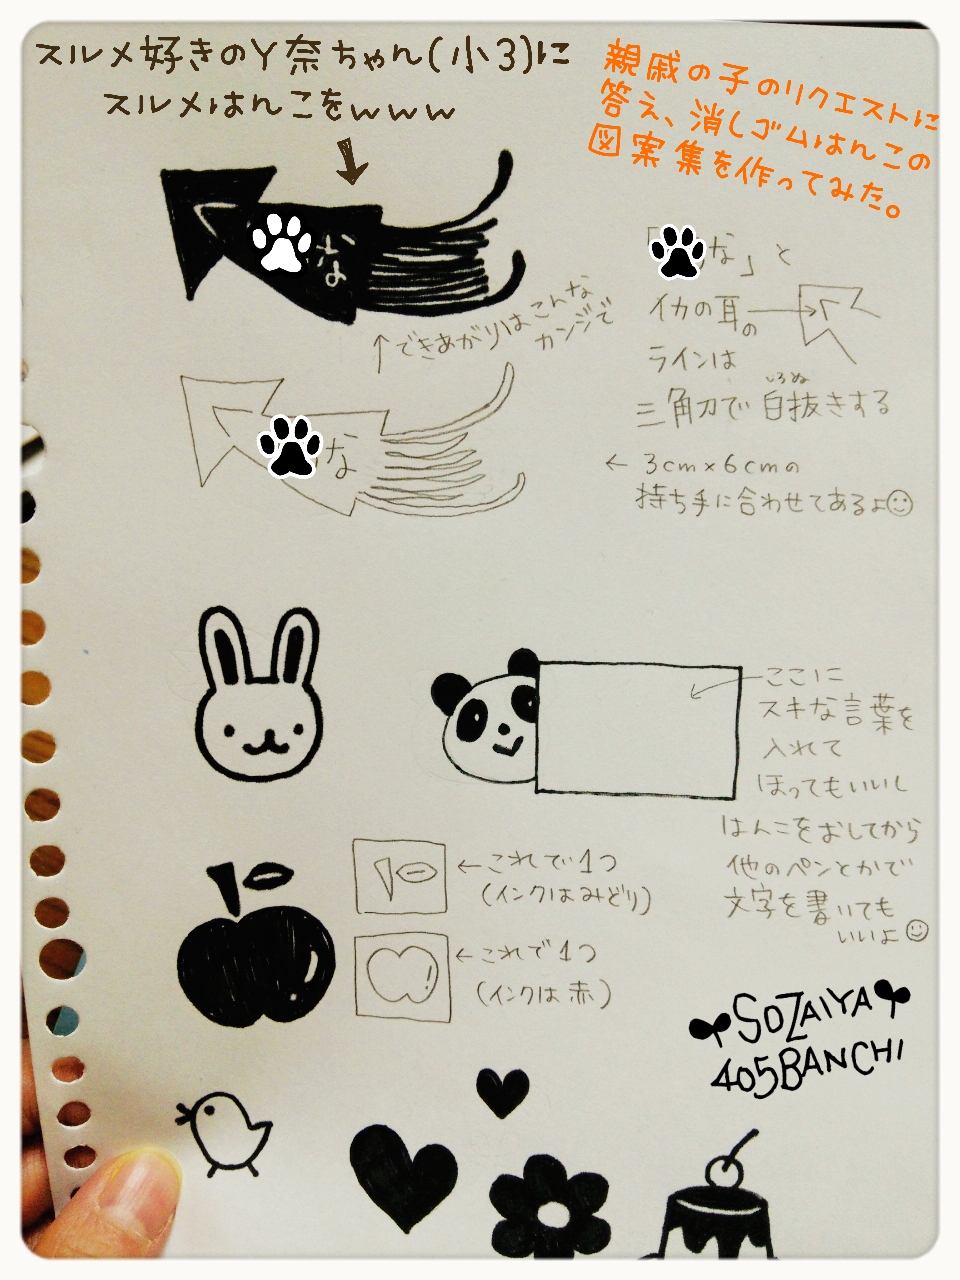 スルメ好きのY奈ちゃん(小3)に
スルメはんこをwww
親戚の子のリクエストに
答え、消しゴムはんこの
図案集を作ってみた。
な
「 な」と
イカの耳の
ラインは
いろぬ
三角刀で白抜きする
↑できあがりはこんな
カンジで
な
← 3cm×6cmの
持ち手に合わせてあるよ☺
ここに
スキな言葉を
入れて
ほってもいいし
はんこをおしてから
他のペンとかで
文字を書いても
いいよ☺
←これで1つ
(インクはみどり)
←これで1つ
(インクは赤)
SOZAIYA
405BANCHI